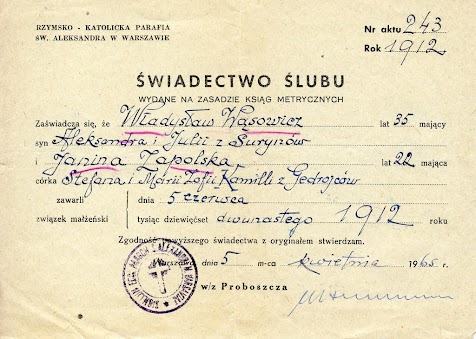 RZYMSKO - KATOLICKA PARAFIA
ŚW. ALEKSANDRA W WARSZAWIE
Nr aktu 243
Rok 1912
ŚWIADECTWO ŚLUBU
WYDANE NA ZASADZIE KSIĄG METRYCZNYCH
Zaświadcza się, że Władysław Wąsowicz lat 35 mający
syn Aleksandra i Julii z Surynów
i Janina Zapolska lat 22 mająca
córka Stefana i Marii Zofii Kamilli z Gedrojców
zawarli dnia 5 czerwca
związek małżeński tysiąc dziewięćset dwunastego 1912 roku
Zgodność powyższego świadectwa z oryginałem stwierdzam.
Warszawa dnia 5 m-ca kwietnia 1965 r.
w/z Proboszcza